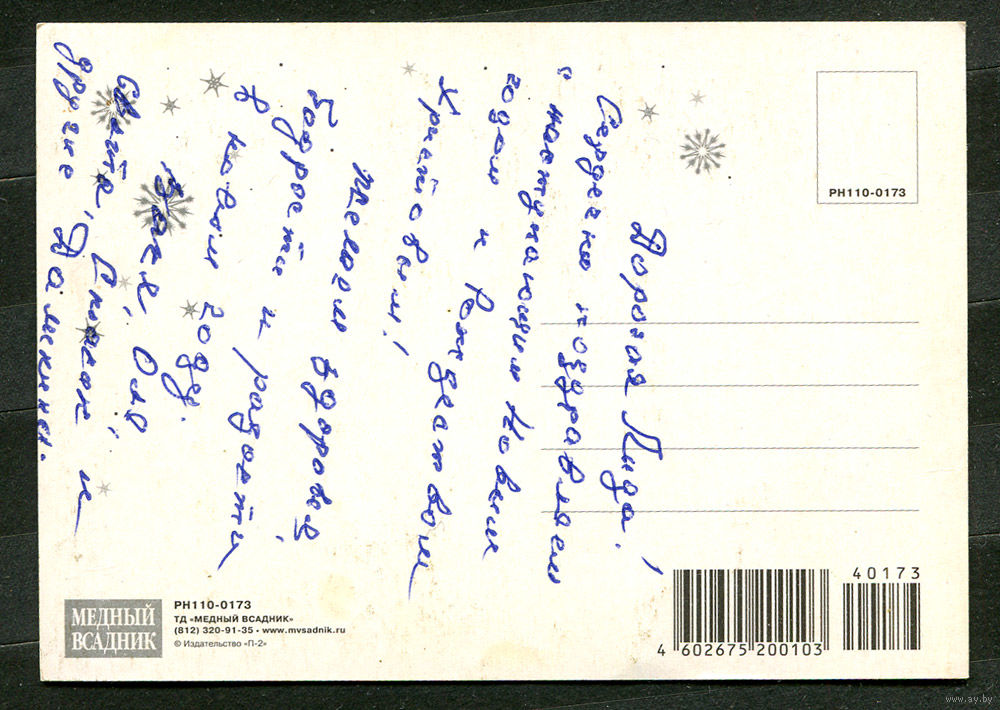 Дорогая Лида!
Сердечно поздравляем
с наступающим Новым
годом и Рождеством
Христовым!
Желаем здоровья,
Бодрости и радости
В новом году.
Ваня, Оля
Света, и
другие
PH110-0173
МЕДНЫЙ
ВСАДНИК
PH110-0173
ТД «МЕДНЫЙ ВСАДНИК»
(812) 320-91-35 • www.mvsadnik.ru
© Издательство «П-2»
40173
4 602675 200103
www.ay.by